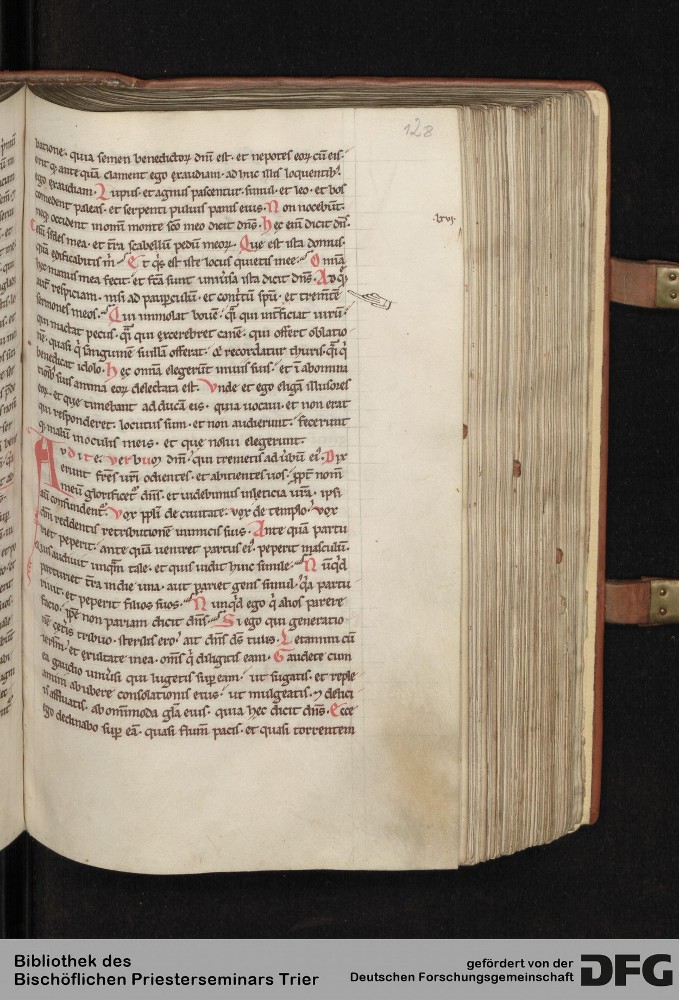 128
batione. quia semen benedictoꝝ dñi est. et nepotes eoꝝ cũ eis.
erit qꝫ ante quã clament ego exaudiam. adhuc illis loquentibꝰ
ego exaudiam. Lupus et agnus pascentur simul. et leo. et bos
comedent paleas. et serpenti puluis panis eius. Non nocebũt.
neqꝫ occident in omni monte sc̃o meo dicit dñs. Hec
.lxvi.
celũ sedes mea. et t̃ra scabellũ pedũ meoꝝ. Que est ista domus.
quã edificabitis m̃. Et q̃s est iste locus quietis mee. Omĩa
hec manus mea fecit. et fc̃a sunt uniũsa ista dicit dñs. Ad
respiciam. nisi ad paupculũ. et cont̃tũ sp̃u. et tremẽtẽ
sermones meos. Qui immolat bouẽ. qui int̃ficiat uirũ.
qui mactat pecus. qui excerebret canẽ. qui offert oblatio
nẽ. quasi sanguinẽ suillũ offerat. recordatur thuris
benedicat idolo. Hec omnia elegerũt in uiis suis. et ĩ abomina
tionibꝰ suis anima eoꝝ delectata est. Vnde et ego eligã illusiones
eoꝝ. et que timebant adducã eis. quia uocaui. et non erat
qui responderet. locutus sum. et non audierunt. fecerunt
qꝫ malũ in oculis meis. et que nolui elegerunt.
Audite uerbum dñi. qui tremetis ad ũbũ eiꝰ. Dix
erunt fr̃es ur̃i odientes. et abicientes uos. ꝓpt̃ nom̃
meũ glorificet dñs. et uidebimus in leticia ur̃a. ipsi
aũt confundent. Vox ppl̃i de ciuitate. uox de templo. uox
dñi reddentis retributionẽ inimicis suis. Ante quã partu
riret peperit. ante quã ueniret partus eiꝰ. peperit masculũ.
Quis audiuit unq̃m tale. et quis uidit huic simile. Nũqd̃
parturiet t̃ra in die una. aut pariet gens simul. q̃a partu
riuit. et peperit filios suos. Nunqd̃ ego q̃ alios parere
facio. ip̃e non pariam dicit dñs. Si ego qui generatio
nẽ cet̃is tribuo. sterilis ero. ait dñs ds̃ tuus. Letamini cũ
ierl̃m. et exultate in ea. omẽs q̃ diligitis eam. Gaudete cum
ea gaudio uniũsi qui lugetis sup eam. ut sugatis. et reple
amini ab ubere consolationis eius. ut mulgeatis. ⁊ delici
is affluatis. ab omimoda gl̃a eius. quia hec dicit dñs. Ecce
ego declinabo sup eã. quasi flum̃ pacis. et quasi torrentem
Bibliothek des
Bischöflichen Priesterseminars Trier
gefördert von der
Deutschen Forschungsgemeinschaft
DFG